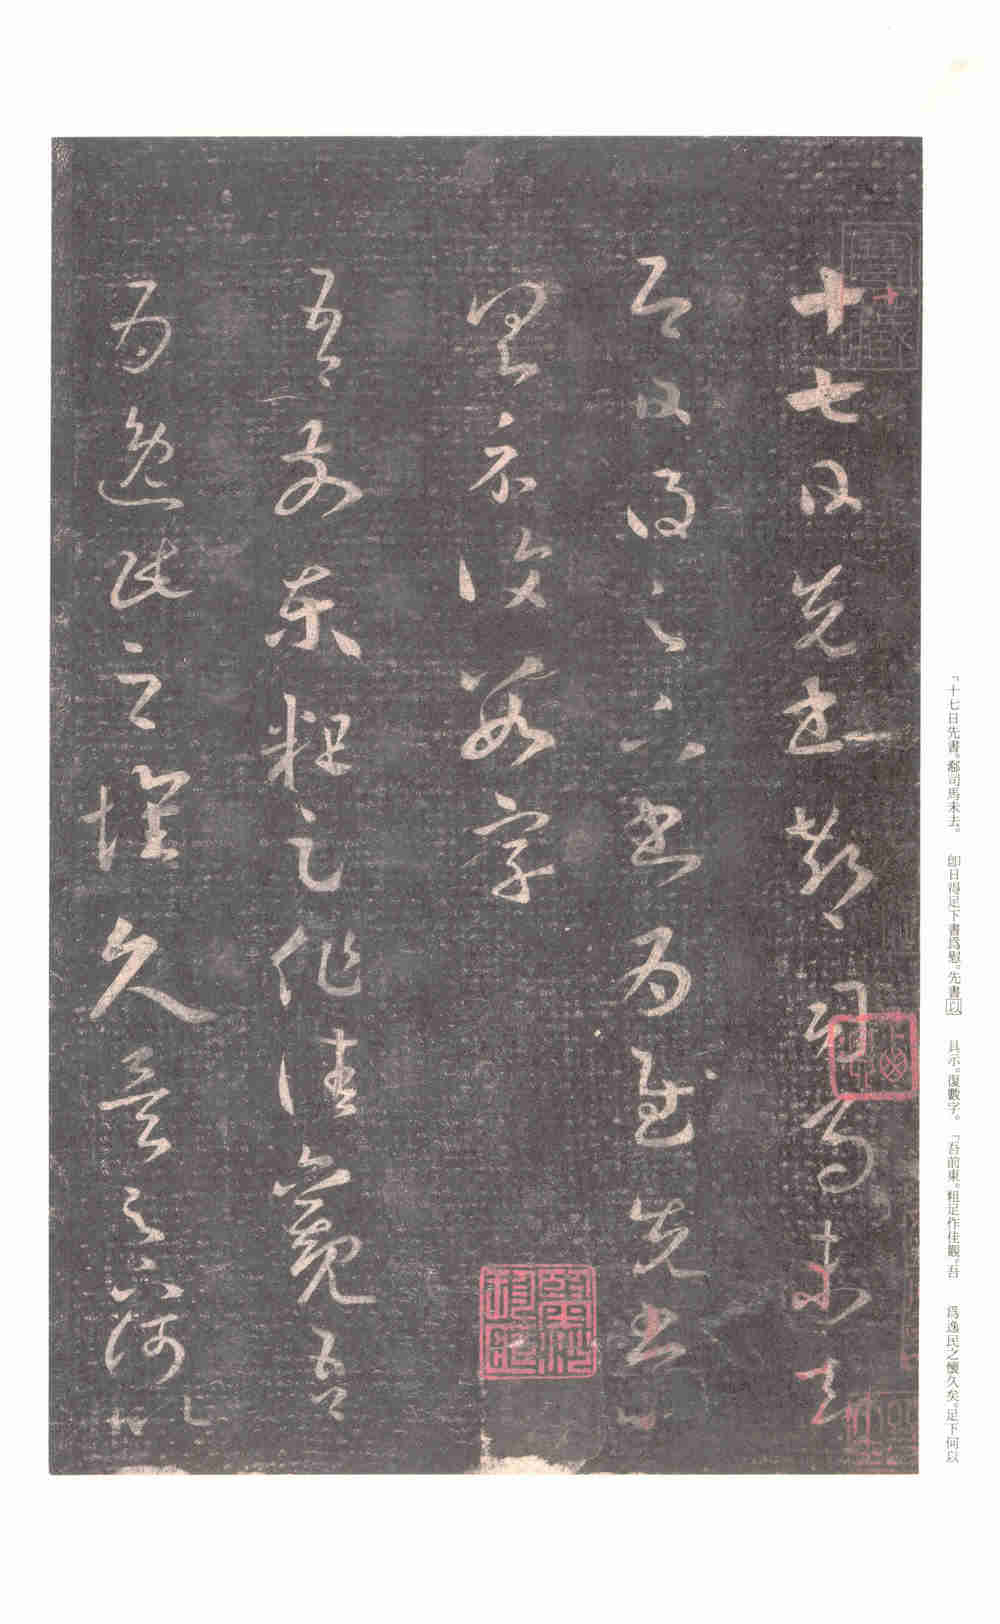 十七日先書郗司馬未去
即日得足下書為慰先書以
具示復數字
吾前東粗足作佳觀吾
為逸民之懷久矣足下何以
「十七日先書。郗司馬未去。　即日得足下書爲慰。先書以　具示。復數字。　「吾前東。粗足作佳觀。吾　爲逸民之懷久矣。足下何以